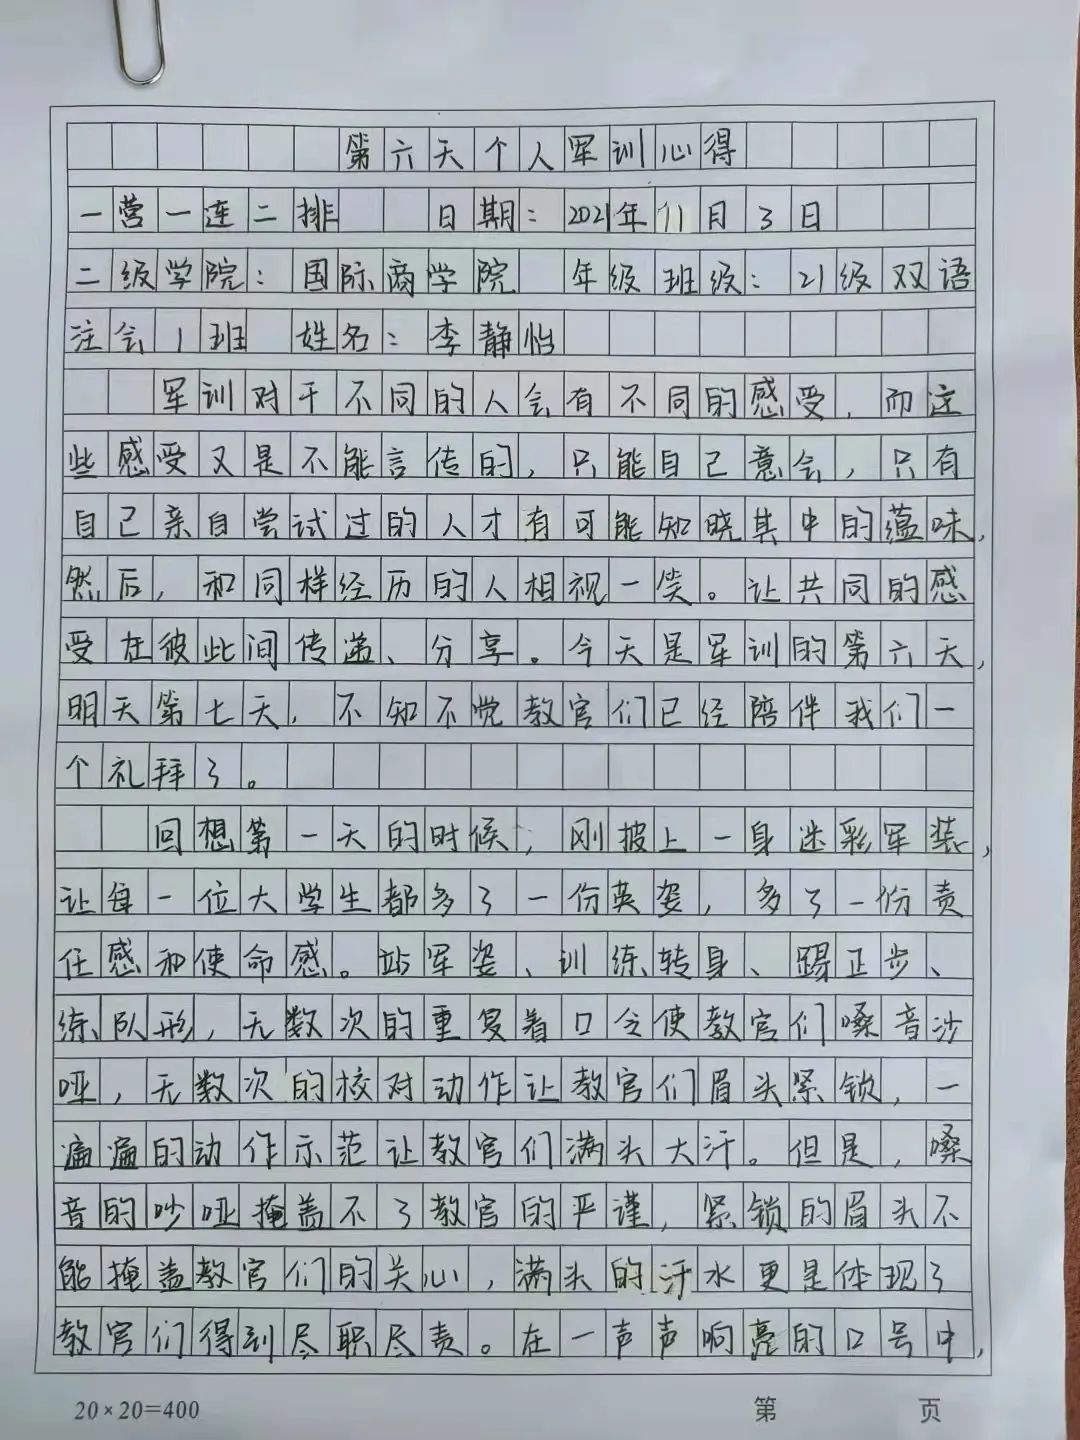 第六天个人军训心得
一营一连二排 日期：2021年11月3日
二级学院：国际商学院 年级班级：21级双语
注会1班 姓名：李静怡
军训对于不同的人会有不同的感受，而这
些感受又是不能言传的，只能自己意会，只有
自己亲自尝试过的人才有可能知晓其中的蕴味，
然后，和同样经历的人相视一笑。让共同的感
受在彼此间传递、分享。今天是军训的第六天，
明天第七天，不知不觉教官们已经陪伴我们一
个礼拜了。
回想第一天的时候，刚披上一身迷彩军装，
让每一位大学生都多了一份英姿，多了一份责
任感和使命感。站军姿、训练转身、踢正步、
练队形，无数次的重复着口令使教官们嗓音沙
哑，无数次的校对动作让教官们眉头紧锁，一
遍遍的动作示范让教官们满头大汗。但是，嗓
音的吵哑掩盖不了教官的严谨，紧锁的眉头不
能掩盖教官们的关心，满头的汗水更是体现了
教官们得到尽职尽责。在一声声响亮的口号中，
20×20=400 第 页